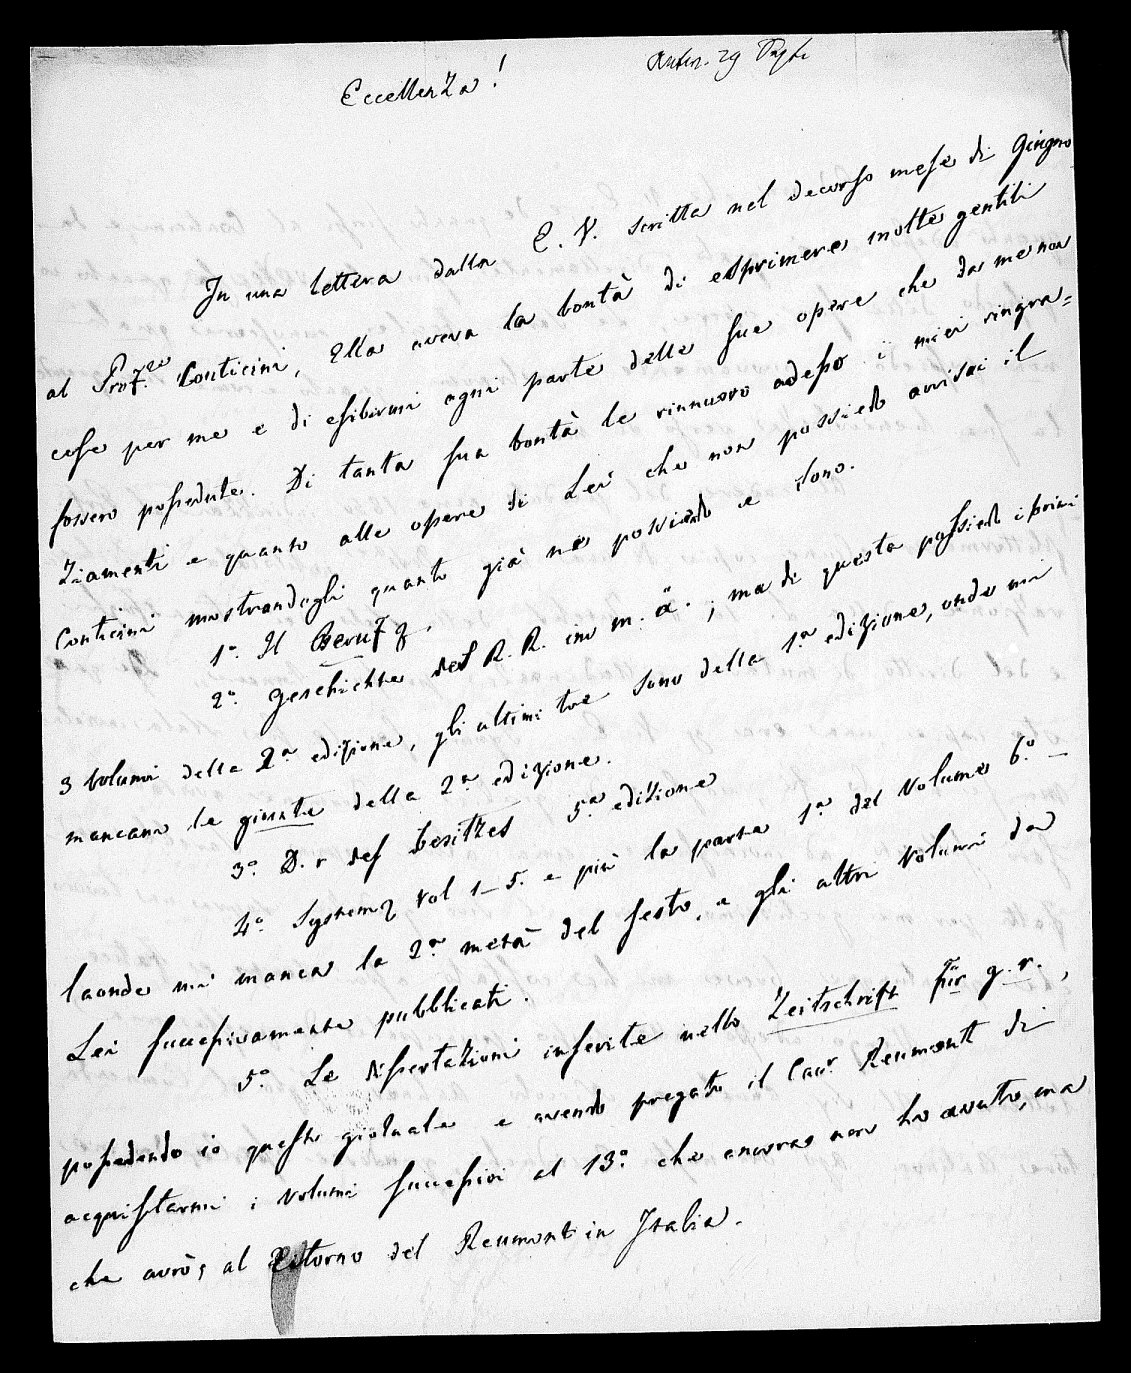 Eccellenza!
In una lettera dalla E. V. scritta nel decorso mese di Giugno
al Prof.re Conticini, Ella aveva la bontà di esprimere molte gentili
cose per me e di esibirmi ogni parte delle sue opere che da me non
fossero possedute. Di tanta sua bontà le rinnuovo adesso i miei ringra=
ziamenti e quanto alle opere di Lei che non possiedo avvisai il
Conticini mostrandogli quanto già ne possiedo e sono.
1º. Il Beruf
2º. Geschichte des R. R. im m. a. ; ma di questa possiedo i primi
3 volumi della 2.a edizione, gli ultimi tre sono della 1.a edizione, onde mi
mancano le giunte della 2.a edizione.
3º. D. r des Besitzes 5.a edizione
4º. System Vol 1–5. e più la parte 1.a del Volume 6.º –
laonde mi manca la 2.a metà del sesto, e gli altri volumi da
Lei successivamente pubblicati.
5º. Le dissertazioni inserite nello Zeitschrift für g. r.,
possedendo io questo giornale e avendo pregato il Cav.r Reumont di
acquistarmi i volumi successivi al 13.º che ancora non ho avuto, ma
che avrò, al ritorno del Reumont in Italia.